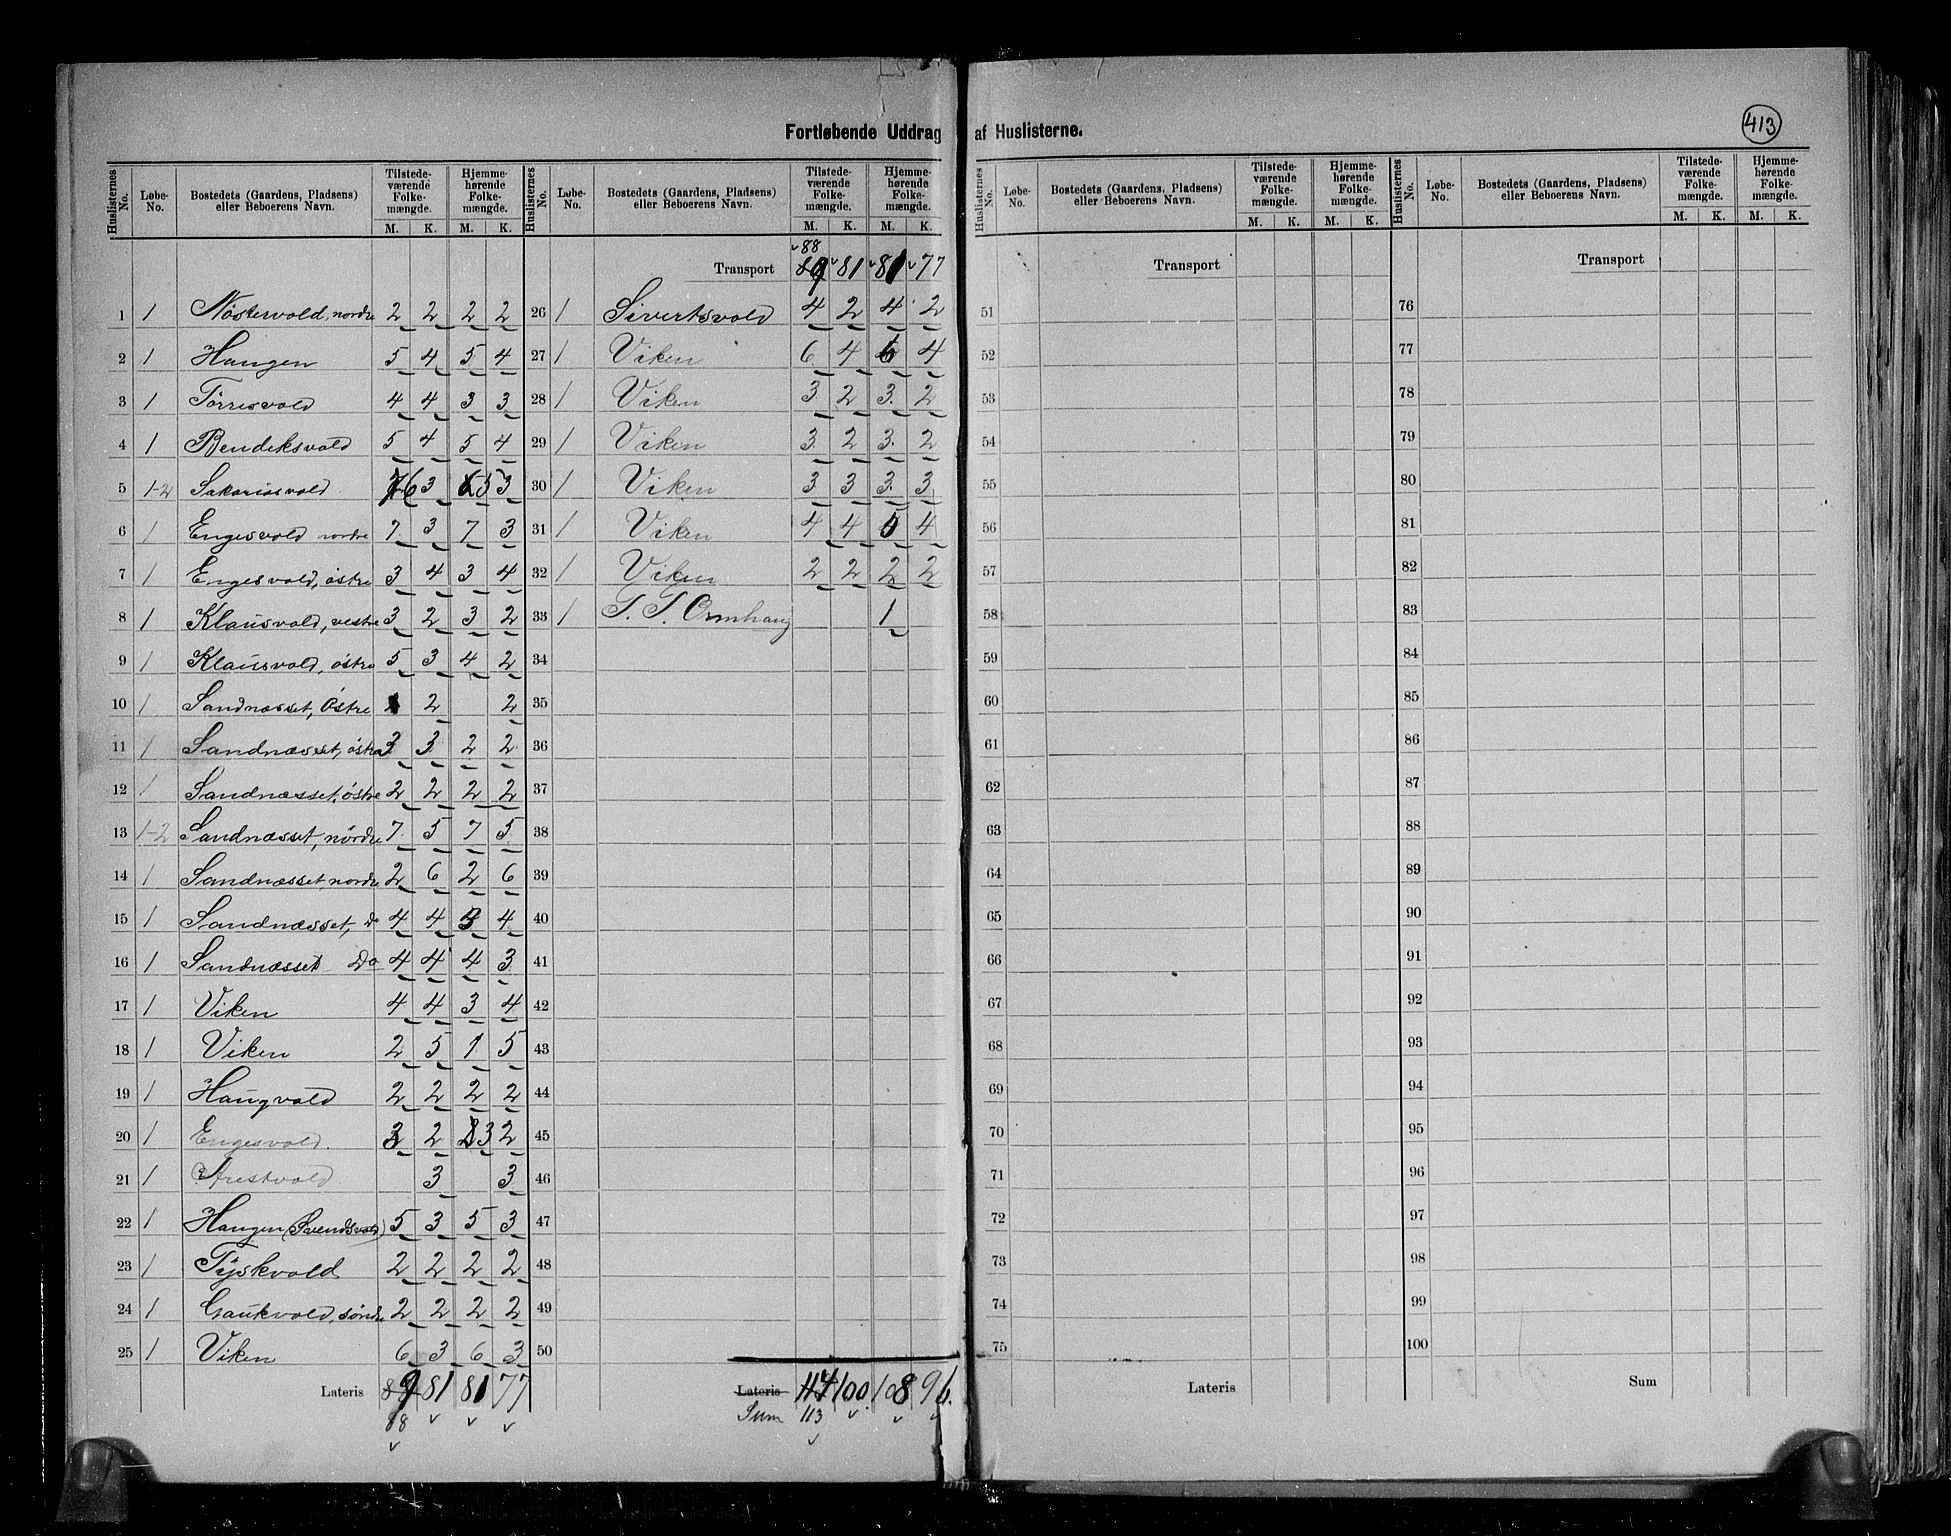 Fortløbende Uddrag af Huslisterne.
413
Huslisternes No. | Løbe-No. | Bostedets (Gaardens, Pladsens) eller Beboerens Navn. | Tilstede-værende Folke-mængde. M. K. | Hjemme-hørende Folke-mængde. M. K.
1 1 Nöstervold, nordre 2 2 2 2
2 1 Haugen 5 4 5 4
3 1 Törresvold 4 4 3 3
4 1 Bendeksvold 5 4 5 4
5 1-2 Sakariasvold 7 6 3 6 5 3
6 1 Engesvold nordre 7 3 7 3
7 1 Engesvold, östre 3 4 3 4
8 1 Klausvold, vestre 3 2 3 2
9 1 Klausvold, östre 5 3 4 2
10 1 Sandnæsset, Östre 2 2
11 1 Sandnæsset, östre 3 3 2 2
12 1 Sandnæsset, östre 2 2 2 2
13 1-2 Sandnæsset, nördre 7 5 7 5
14 1 Sandnæsset nordre 2 6 2 6
15 1 Sandnæsset, Do 4 4 3 4
16 1 Sandnæsset Do 4 4 4 3
17 1 Viken 4 4 3 4
18 1 Viken 2 5 1 5
19 1 Haugvold 2 2 2 2
20 1 Engesvold. 3 2 2 3 2
21 1 3 3
22 1 Haugen (Svendsvold) 5 3 5 3
23 1 Tyskvold 2 2 2 2
24 1 Gaukvold, söndre 2 2 2 2
25 1 Viken 6 3 6 3
Lateris 89 81 81 77
88
Huslisternes No. | Løbe-No. | Bostedets (Gaardens, Pladsens) eller Beboerens Navn. | Tilstede-værende Folke-mængde. M. K. | Hjemme-hørende Folke-mængde. M. K.
88
Transport 89 81 81 77
26 1 Sivertsvold 4 2 4 2
27 1 Viken 6 4 6 4
28 1 Viken 3 2 3 2
29 1 Viken 3 2 3 2
30 1 Viken 3 3 3 3
31 1 Viken 4 4 5 4
32 1 Viken 2 2 2 2
33 1 T. T. Ormhaug 1
34
35
36
37
38
39
40
41
42
43
44
45
46
47
48
49
50
Lateris 114 100 108 96.
Sum 113
Huslisternes No. | Løbe-No. | Bostedets (Gaardens, Pladsens) eller Beboerens Navn. | Tilstede-værende Folke-mængde. M. K. | Hjemme-hørende Folke-mængde. M. K.
Transport
51
52
53
54
55
56
57
58
59
60
61
62
63
64
65
66
67
68
69
70
71
72
73
74
75
Lateris
Huslisternes No. | Løbe-No. | Bostedets (Gaardens, Pladsens) eller Beboerens Navn. | Tilstede-værende Folke-mængde. M. K. | Hjemme-hørende Folke-mængde. M. K.
Transport
76
77
78
79
80
81
82
83
84
85
86
87
88
89
90
91
92
93
94
95
96
97
98
99
100
Sum